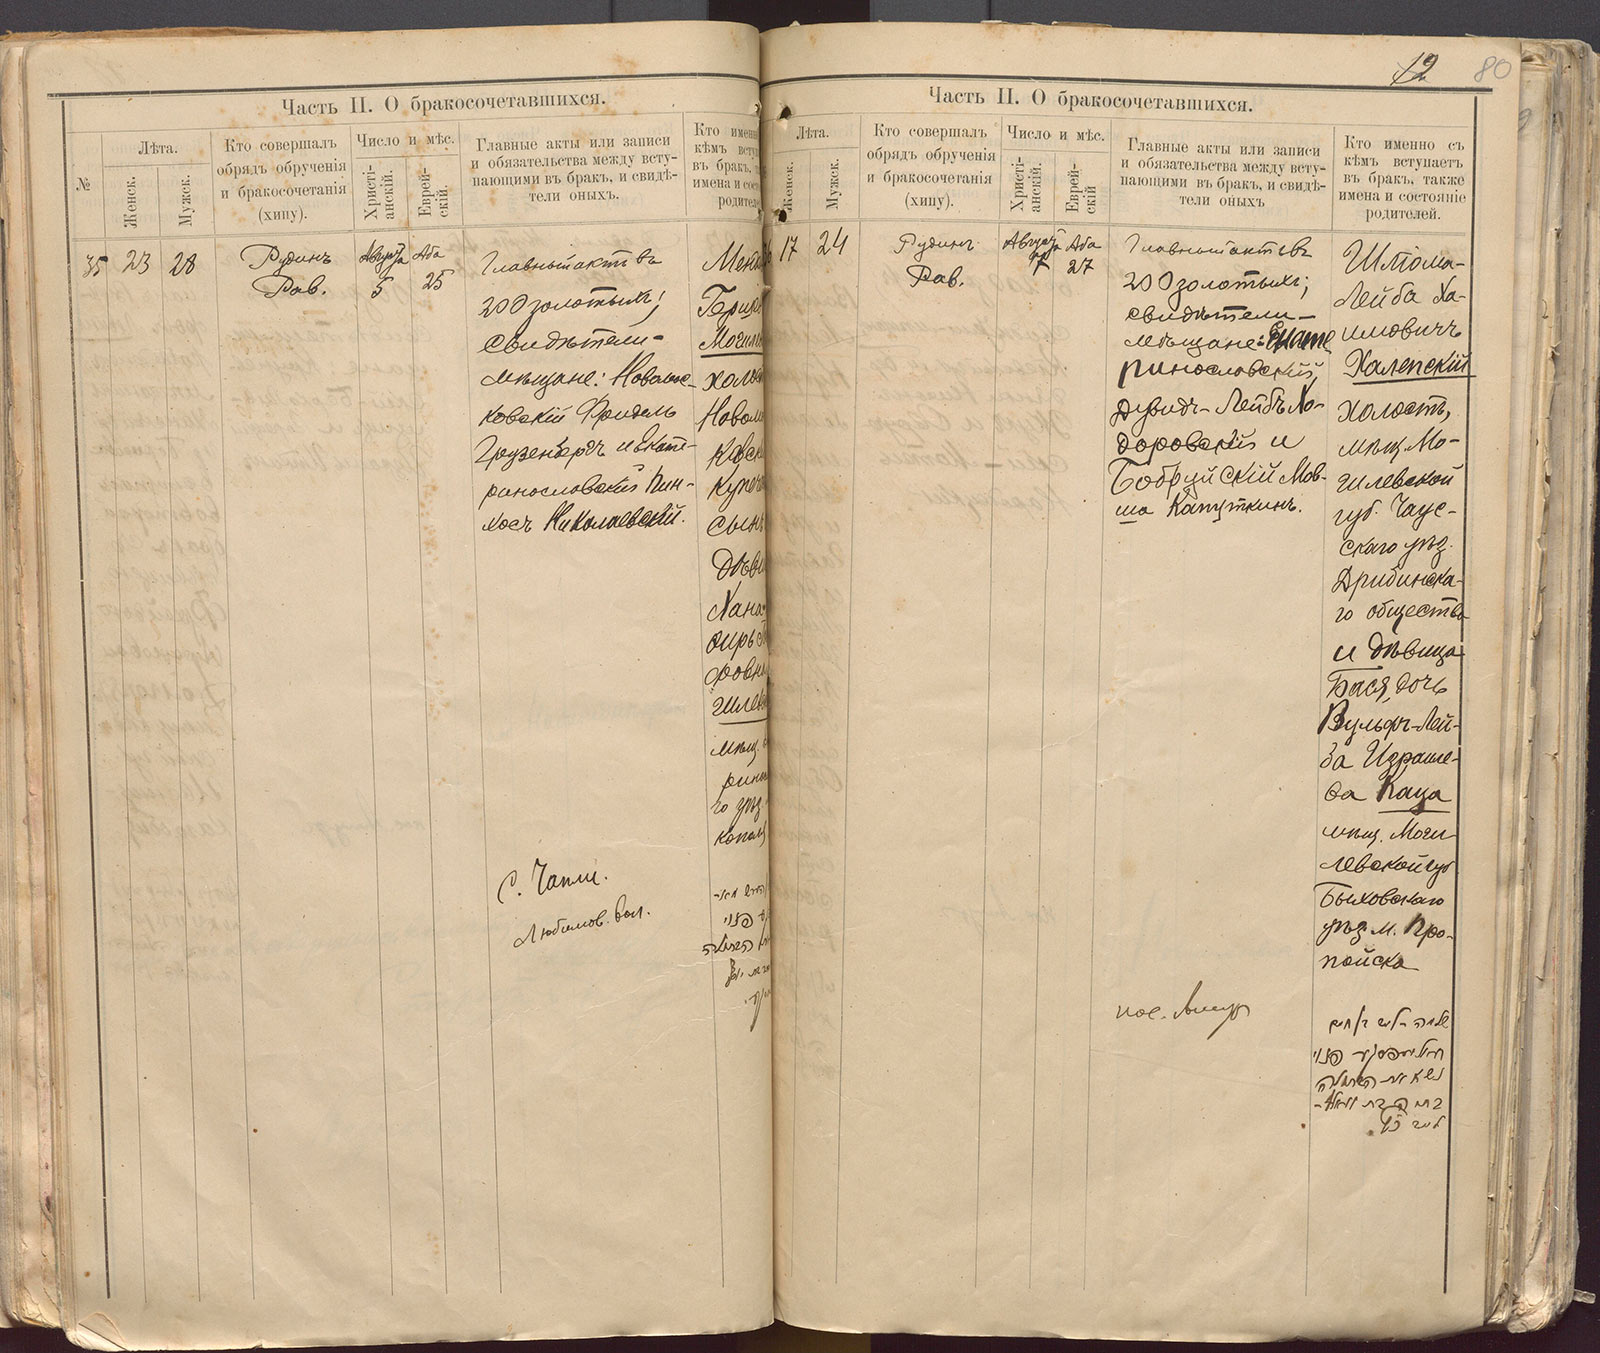 Часть II. О бракосочетавшихся.
№
Лѣта.
Женск.
Мужск.
Кто совершалъ
обрядъ обрученія
и бракосочетанія
(хипу).
Число и мѣс.
Христі-
анскій.
Еврей-
скій.
Главные акты или записи
и обязательства между всту-
пающими въ бракъ, и свидѣ-
тели оныхъ.
Кто именн
кѣмъ всту
въ бракъ, т
имена и сос
родител
35
23
28
Рудинъ
Рав.
Августа
5
Аба
25
Главный актъ въ
200 золотыхъ;
свидѣтели-
мѣщане: Новомос-
ковскій Фридель
Грузенбергъ и Екате-
ринославскій Пин-
хосъ Николаевскій.
Могиле
холос
Новомо
ковск
купеч
сынъ
дѣви
Хана
ровна
гилев
мѣщ.
рино
го уѣз
С. Чапли.
Любимов. вол.
12
80
Часть II. О бракосочетавшихся.
Лѣта.
Женск.
Мужск.
Кто совершалъ
обрядъ обрученія
и бракосочетанія
(хипу).
Число и мѣс.
Христі-
анскій.
Еврей-
скій
Главные акты или записи
и обязательства между всту-
пающими въ бракъ, и свидѣ-
тели оныхъ
Кто именно съ
кѣмъ вступаетъ
въ бракъ, также
имена и состояніе
родителей.
17
24
Рудинъ
Рав.
Августа
7
Аба
27
Главный актъ въ
200 золотыхъ;
свидѣтели-
мѣщане: Екате
ринославскій,
Дувидъ-Лейбъ Хо-
доровскій и
Бобруйскій Мов-
ша Капуткинъ.
Шлома-
Лейба Ха-
имовичъ
Халепскій
холостъ,
мѣщ. Мо-
гилевской
губ. Чаус-
скаго уѣз.
Дрибинска-
го общества
и дѣвица
Бася, дочь
Вульфъ-Лей-
ба Израиле-
ва Каца
мѣщ. Моги-
левской губ
Быховскаго
уѣз. м. Про-
пойска
пос. Амур